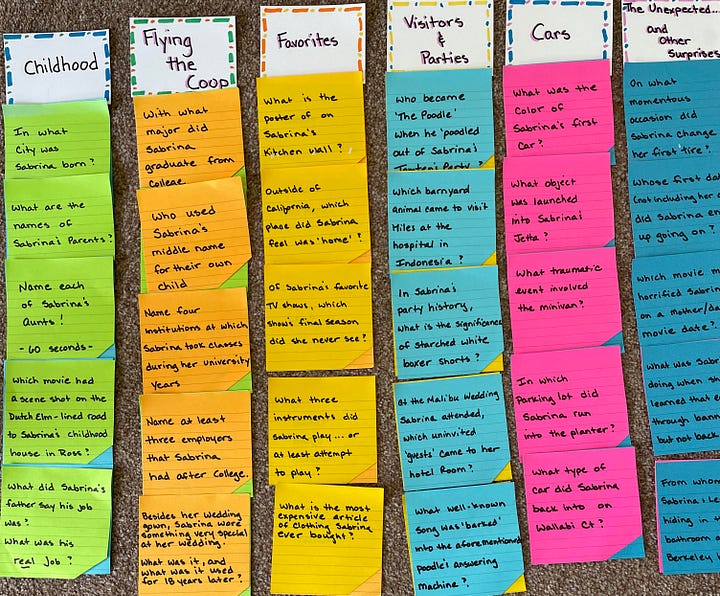 Childhood
In what
City was
Sabrina born?
What are the
names of
Sabrina's Parents?
Name each
of Sabrina's
Aunts!
- 60 seconds -
Which movie had
a scene shot on the
Dutch Elm-lined road
to Sabrina's childhood
house in Ross?
What did Sabrina's
father say his job
was?
What was his
real Job?
Flying
the
Coop
With what
major did
Sabrina
graduate from
College
Who used
Sabrina's
middle name
for their own
child
Name four
institutions at which
Sabrina took classes
during her university
years
Name at least
three employers
that Sabrina
had after College.
Besides her wedding
gown, Sabrina wore
something very special
at her wedding.
What was it, and
what was it used
for 18 years later?
Favorites
What is the
poster of on
Sabrina's
Kitchen Wall?
Outside of
California, which
place did Sabrina
feel was 'home'?
Of Sabrina's favorite
TV shows, which
show's final season
did she never see?
What three
instruments did
Sabrina play... or
at least attempt
to play?
What is the most
expensive article
of Clothing Sabrina
ever bought?
Visitors
&
Parties
Who became
'The Poodle'
when he 'poodled
out of Sabrina's
Party?
Which barnyard
animal came to visit
Miles at the
hospital in
Indonesia?
In Sabrina's
party history,
what is the significance
of starched white
boxer shorts?
At the Malibu Wedding
Sabrina attended,
which uninvited
'guests' came to her
hotel Room?
What well-known
Song was 'barked'
into the aforementioned
poodle's answering
machine?
Cars
What was the
Color of
Sabrina's first
Car?
What object
was launched
into Sabrina's
Jetta?
What traumatic
event involved
the minivan?
In which
Parking lot did
Sabrina run
into the planter?
What type of
car did Sabrina
back into on
Wallabi Ct?
The Unexpected...
and
Other
Surprises
On what
momentous
occasion did
Sabrina change
her first tire?
Whose first da
(not including her
did Sabrina en
up going on?
Which movie m
horrified Sabrin
on a mother/da
movie date?
What was Sabr
doing when sh
learned that e
through bann
but not back
From whom
Sabrina &
hiding in
bathroom a
Berkeley